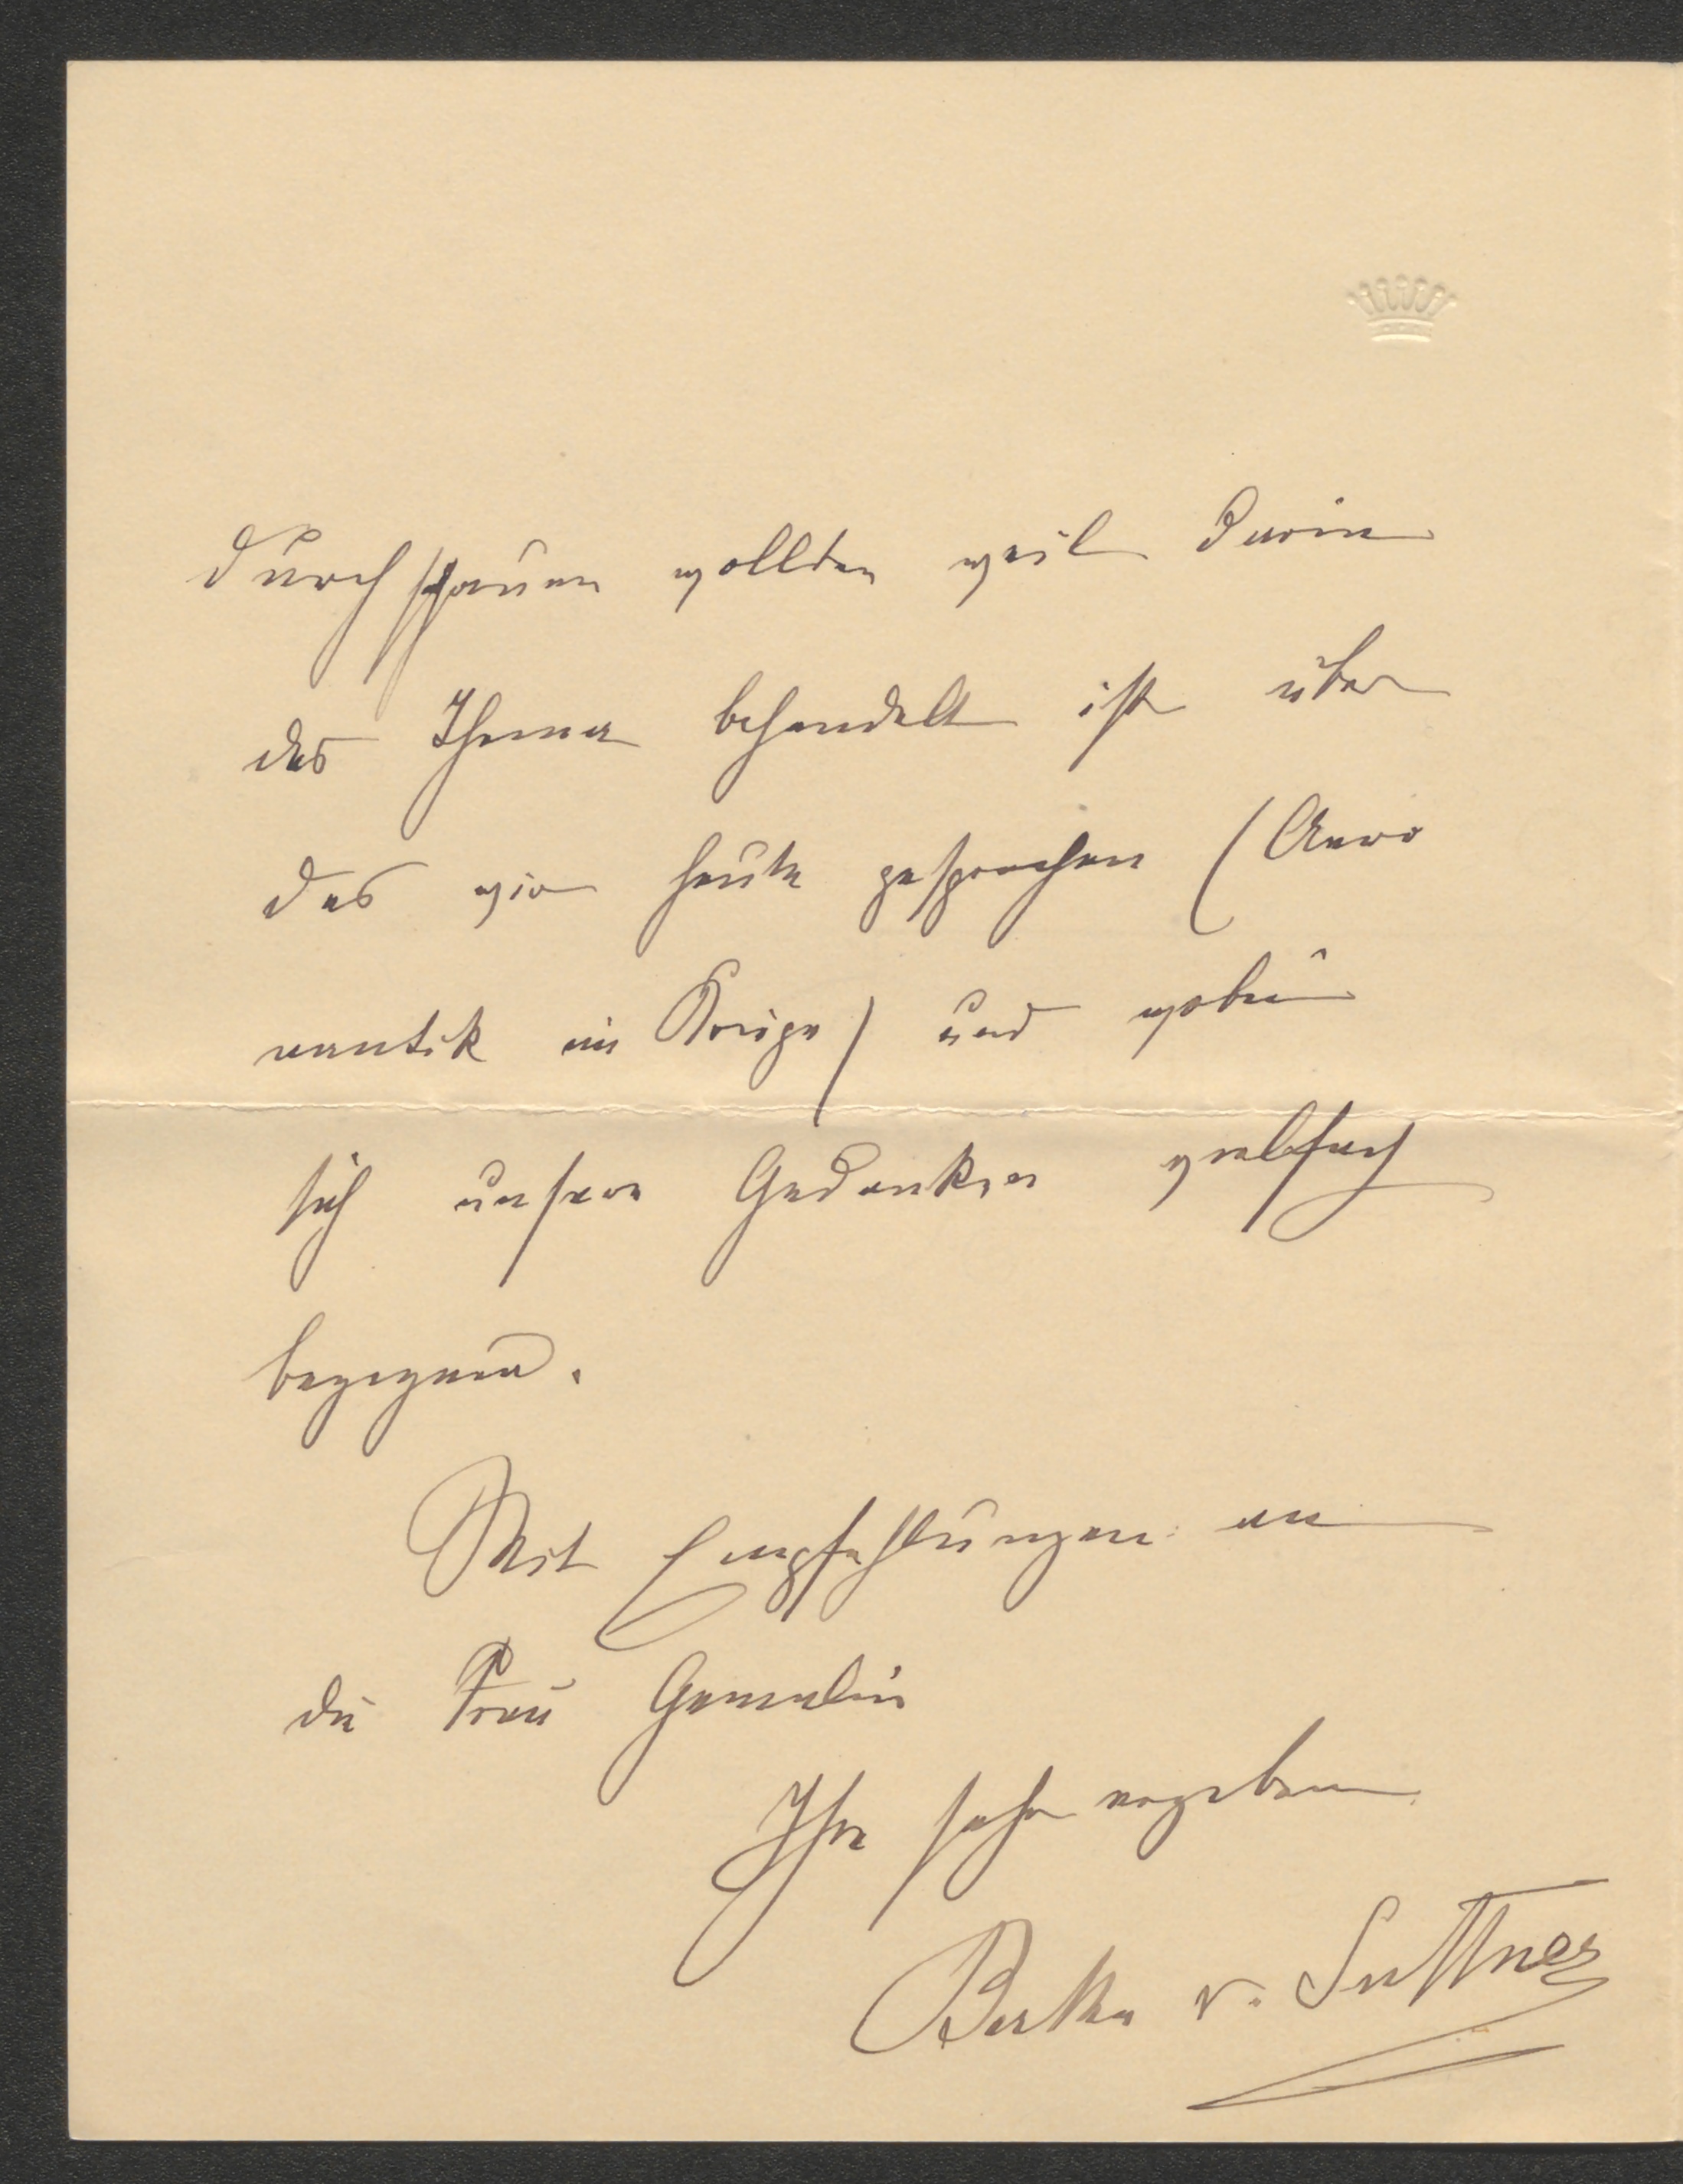 durchschauen wollten weil darin
das Thema behandelt ist über
das wir heute gesprochen (Aero
nautik im Kriege) und wobei
sich unsere Gedanken vielfach
begegnen.
Mit Empfehlungen an
die Frau Gemalin
Ihre sehr ergebene
Bertha v. Suttner